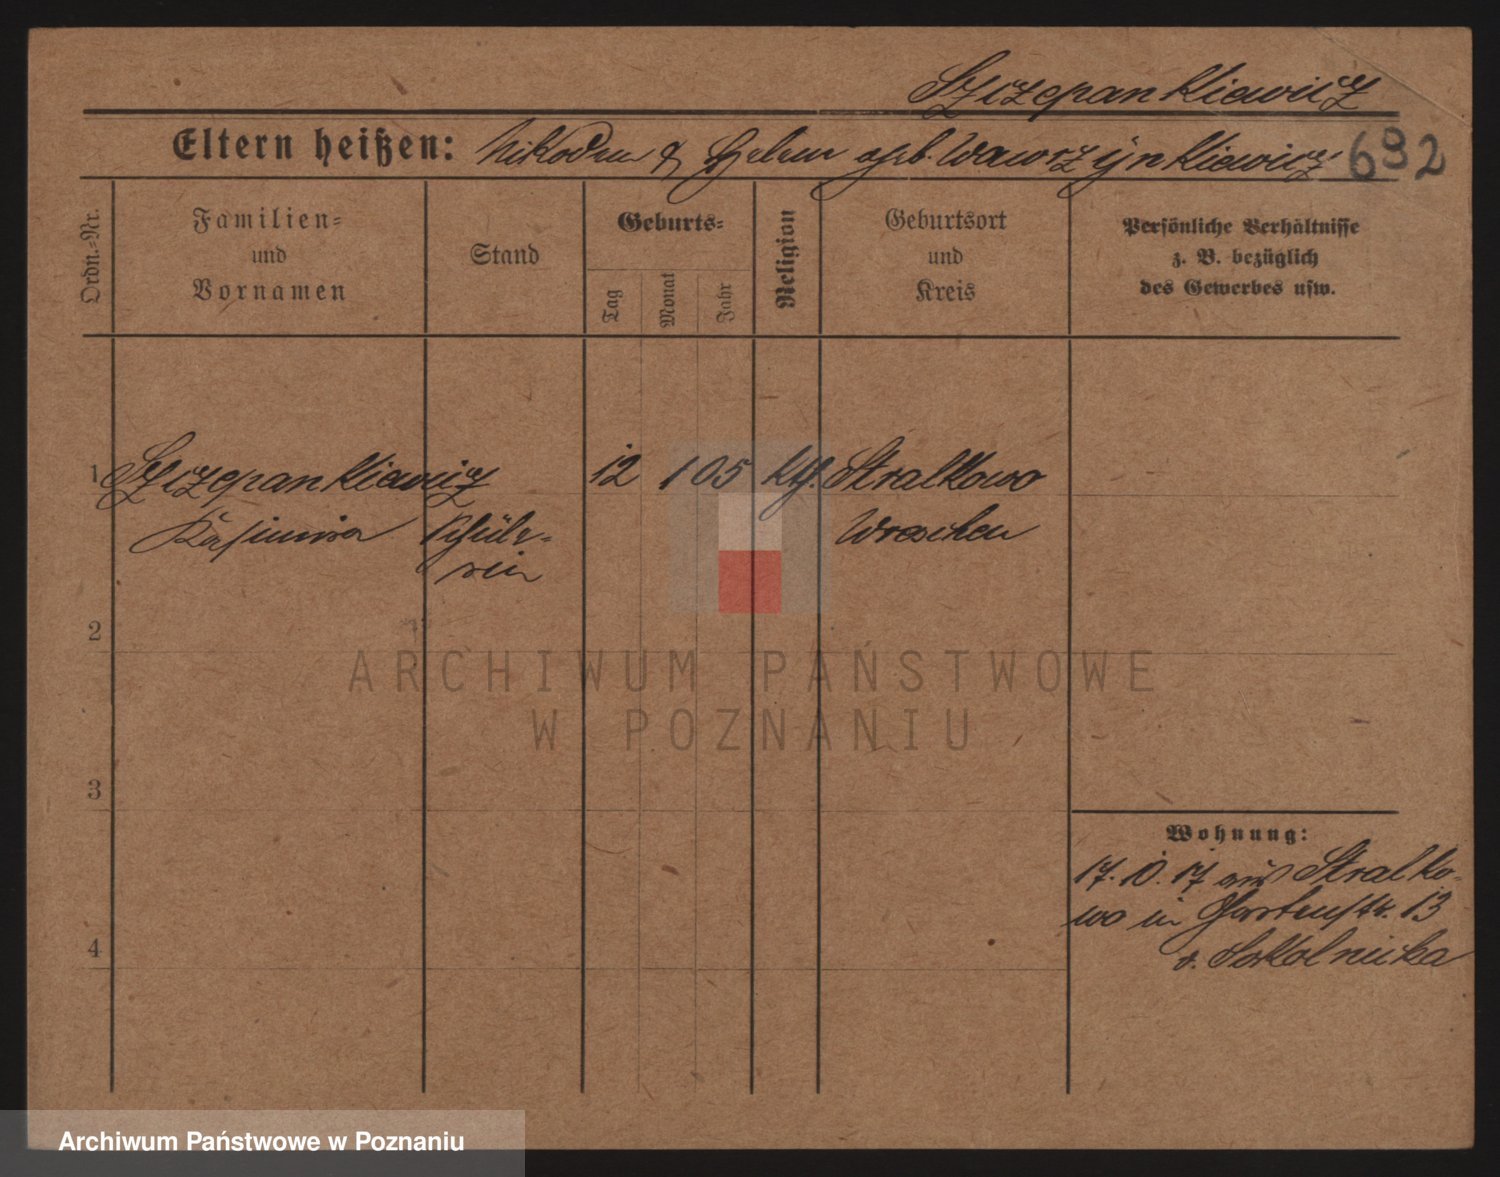 Szczepankiewicz
Eltern heißen: Nikodem & Helene geb. Wawrzynkiewicz 692
Ordn.=Nr.
Familien=
und
Vornamen
Stand
Geburts=
Tag
Monat
Jahr
Religion
Geburtsort
und
Kreis
Persönliche Verhältnisse
z. B. bezüglich
des Gewerbes usw.
1 Szczepankiewicz 12 1 05 kth. Stralkowo
Kasimira Schüle- Wreschen
rin
2
3
4
Wohnung:
17.10.17 aus Stralko-
wo in Gartenstr. 13
b. Sokolnicka
ARCHIWUM PAŃSTWOWE
W POZNANIU
Archiwum Państwowe w Poznaniu